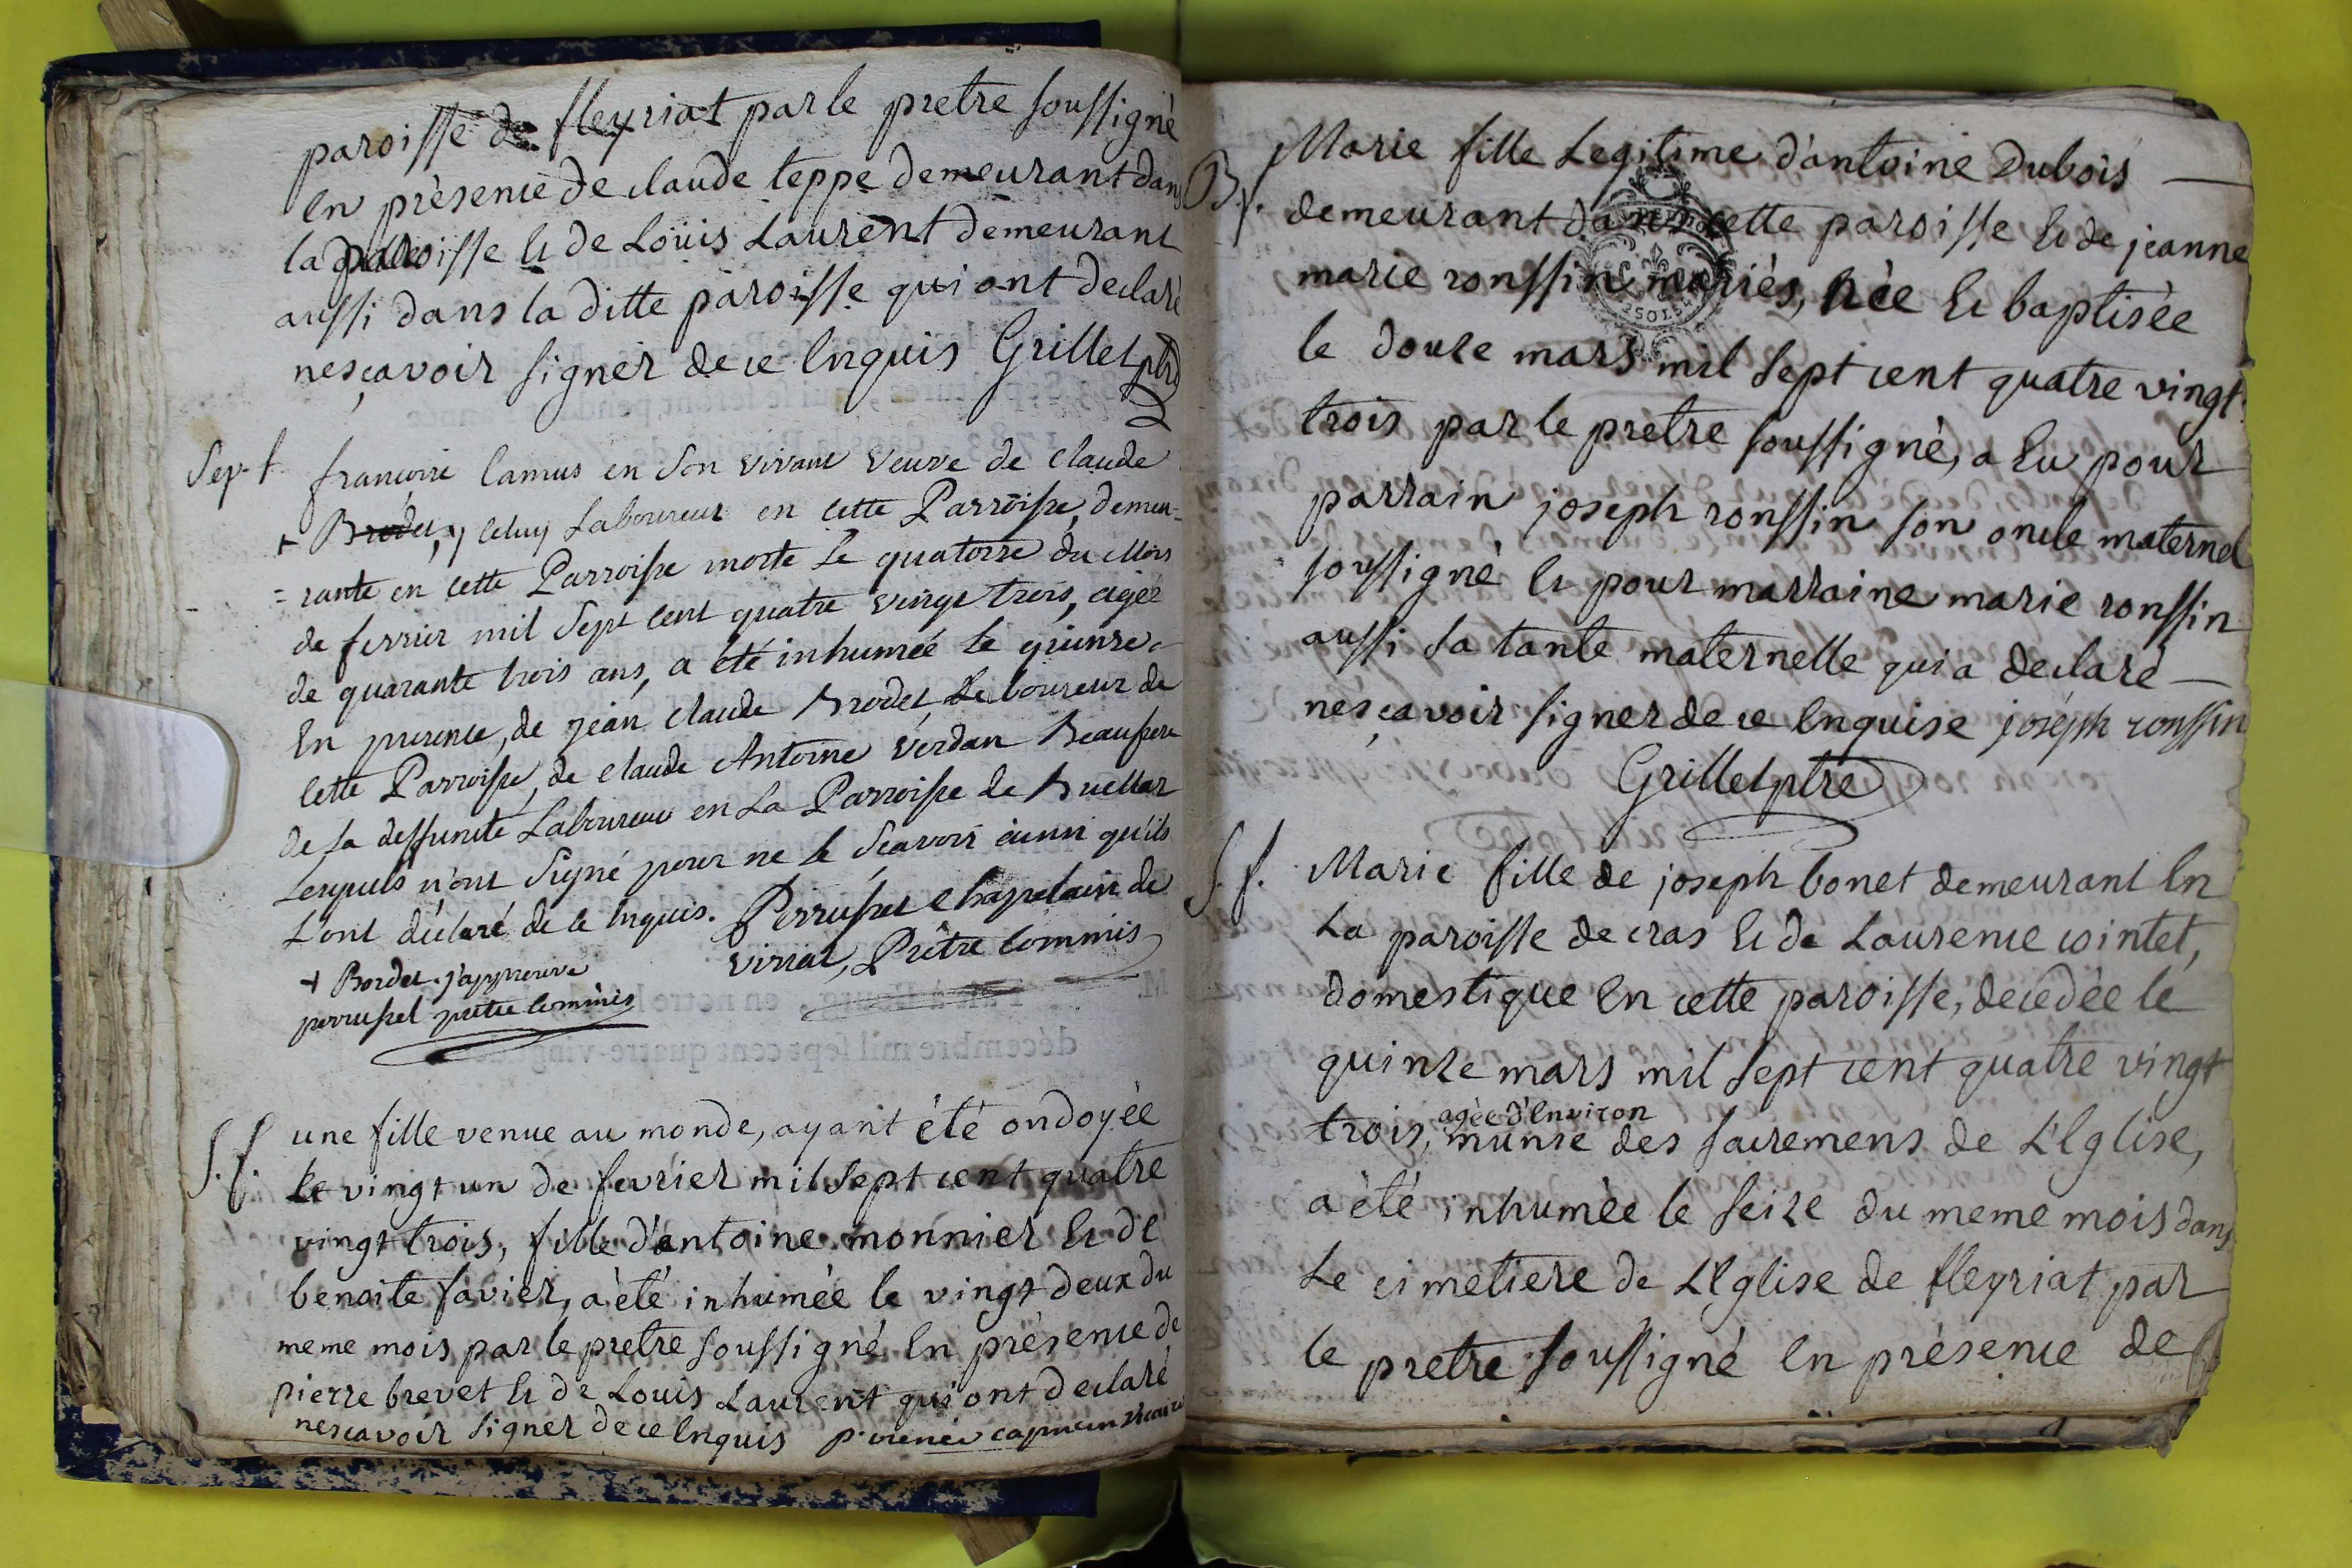 paroisse de fleyriat par le pretre soussigné
en présence de claude teppe demeurant dans
la paroisse et de Louis Laurent demeurant
aussi dans la ditte paroisse qui ont declaré
nesçavoir signer de ce enquis Grillet ptre
Sep. f. francoise Camus en son vivant veuve de claude
+ Brodet, y celuy Laboureur en cette Parroisse, demeu-
= rante en cette Parroisse morte le quatorze du mois
de fevrier mil sept cent quatre vingt trois, agée
de quarante trois ans, a été inhumée le quinze
En presence, de jean claude Brodet, Laboureur de
cette Parroisse, de claude Antoine verdan Beaufrere
de la deffunte Laboureur en La Parroisse de Buellar
Lesquels n'ont signé pour ne le scavoir ainsi qu'ils
L'ont déclaré de ce Enquis. Perrussel chapelain de
viriat, Prêtre commis
+ Bordet j'approuve
perrussel prêtre commis
S. f. une fille venue au monde, ayant été ondoyée
Le vingt un de fevrier mil sept cent quatre
vingt trois, fille d'antoine monnier et de
benoite favier, a été inhumée le vingt deux du
meme mois par le pretre soussigné en présence de
pierre brevet et de Louis Laurent qui ont declaré
nesçavoir signer de ce enquis capucin
Bt. Marie fille Legitime d'antoine Dubois
demeurant dans cette paroisse et de jeanne
marie ronssin mariés, née et baptisée
le douze mars mil sept cent quatre vingt
trois par le pretre soussigné, a eu pour
parrain joseph ronssin son oncle maternel
soussigné et pour marraine marie ronssin
aussi sa tante maternelle qui a declaré
nesçavoir signer de ce enquise joseph ronssin
Grillet ptre
S. f. Marie fille de joseph bonet demeurant en
La paroisse de cras et de Laurence cointet,
domestique en cette paroisse, decedée le
quinze mars mil sept cent quatre vingt
agée d'environ
trois, munie des sacremens de L'Eglise,
a été inhumée le seize du meme mois dans
Le cimetiere de L'Eglise de fleyriat par
le pretre soussigné en présence de